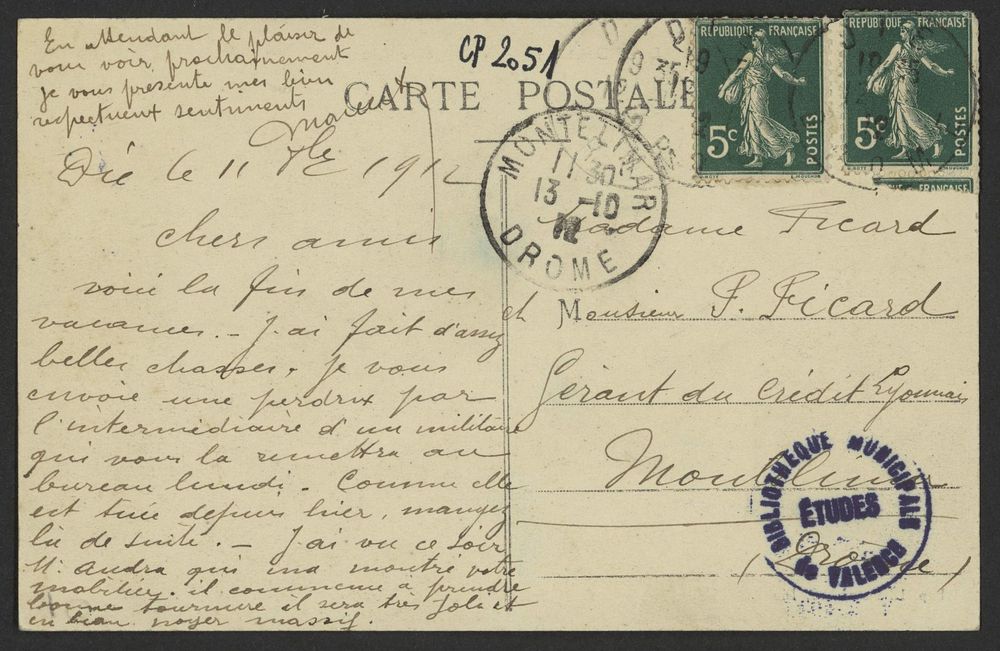 En attendant le plaisir de
vous voir prochainement
je vous présente mes bien
respectueux sentiments
CP 2051
CARTE POSTALE
RÉPUBLIQUE FRANÇAISE
5c
POSTES
RÉPUBLIQUE FRANÇAISE
5c
POSTES
FRANÇAISE
MONTELIMAR
11 30
13 -10
12
DROME
Die le 11 Xbre 1912
chers amis
voici la fin de mes
vacances. - J'ai fait d'assez
belles chasses. je vous
envoie une perdrix par
l'intermédiaire d'un militaire
qui vous la remettra au
bureau lundi. Comme elle
est tuée depuis hier, mangez
la de suite. - J'ai vu ce soir
M. Andra qui m'a montré votre
mobilier. il commence à prendre
bonne tournure il sera très joli et
en beau noyer massif.
Madame Ficard
et Monsieur P. Ficard
Gérant du Crédit Lyonnais
Montélimar
(Drôme)
BIBLIOTHEQUE MUNICIPALE
ÉTUDES
de VALENCE